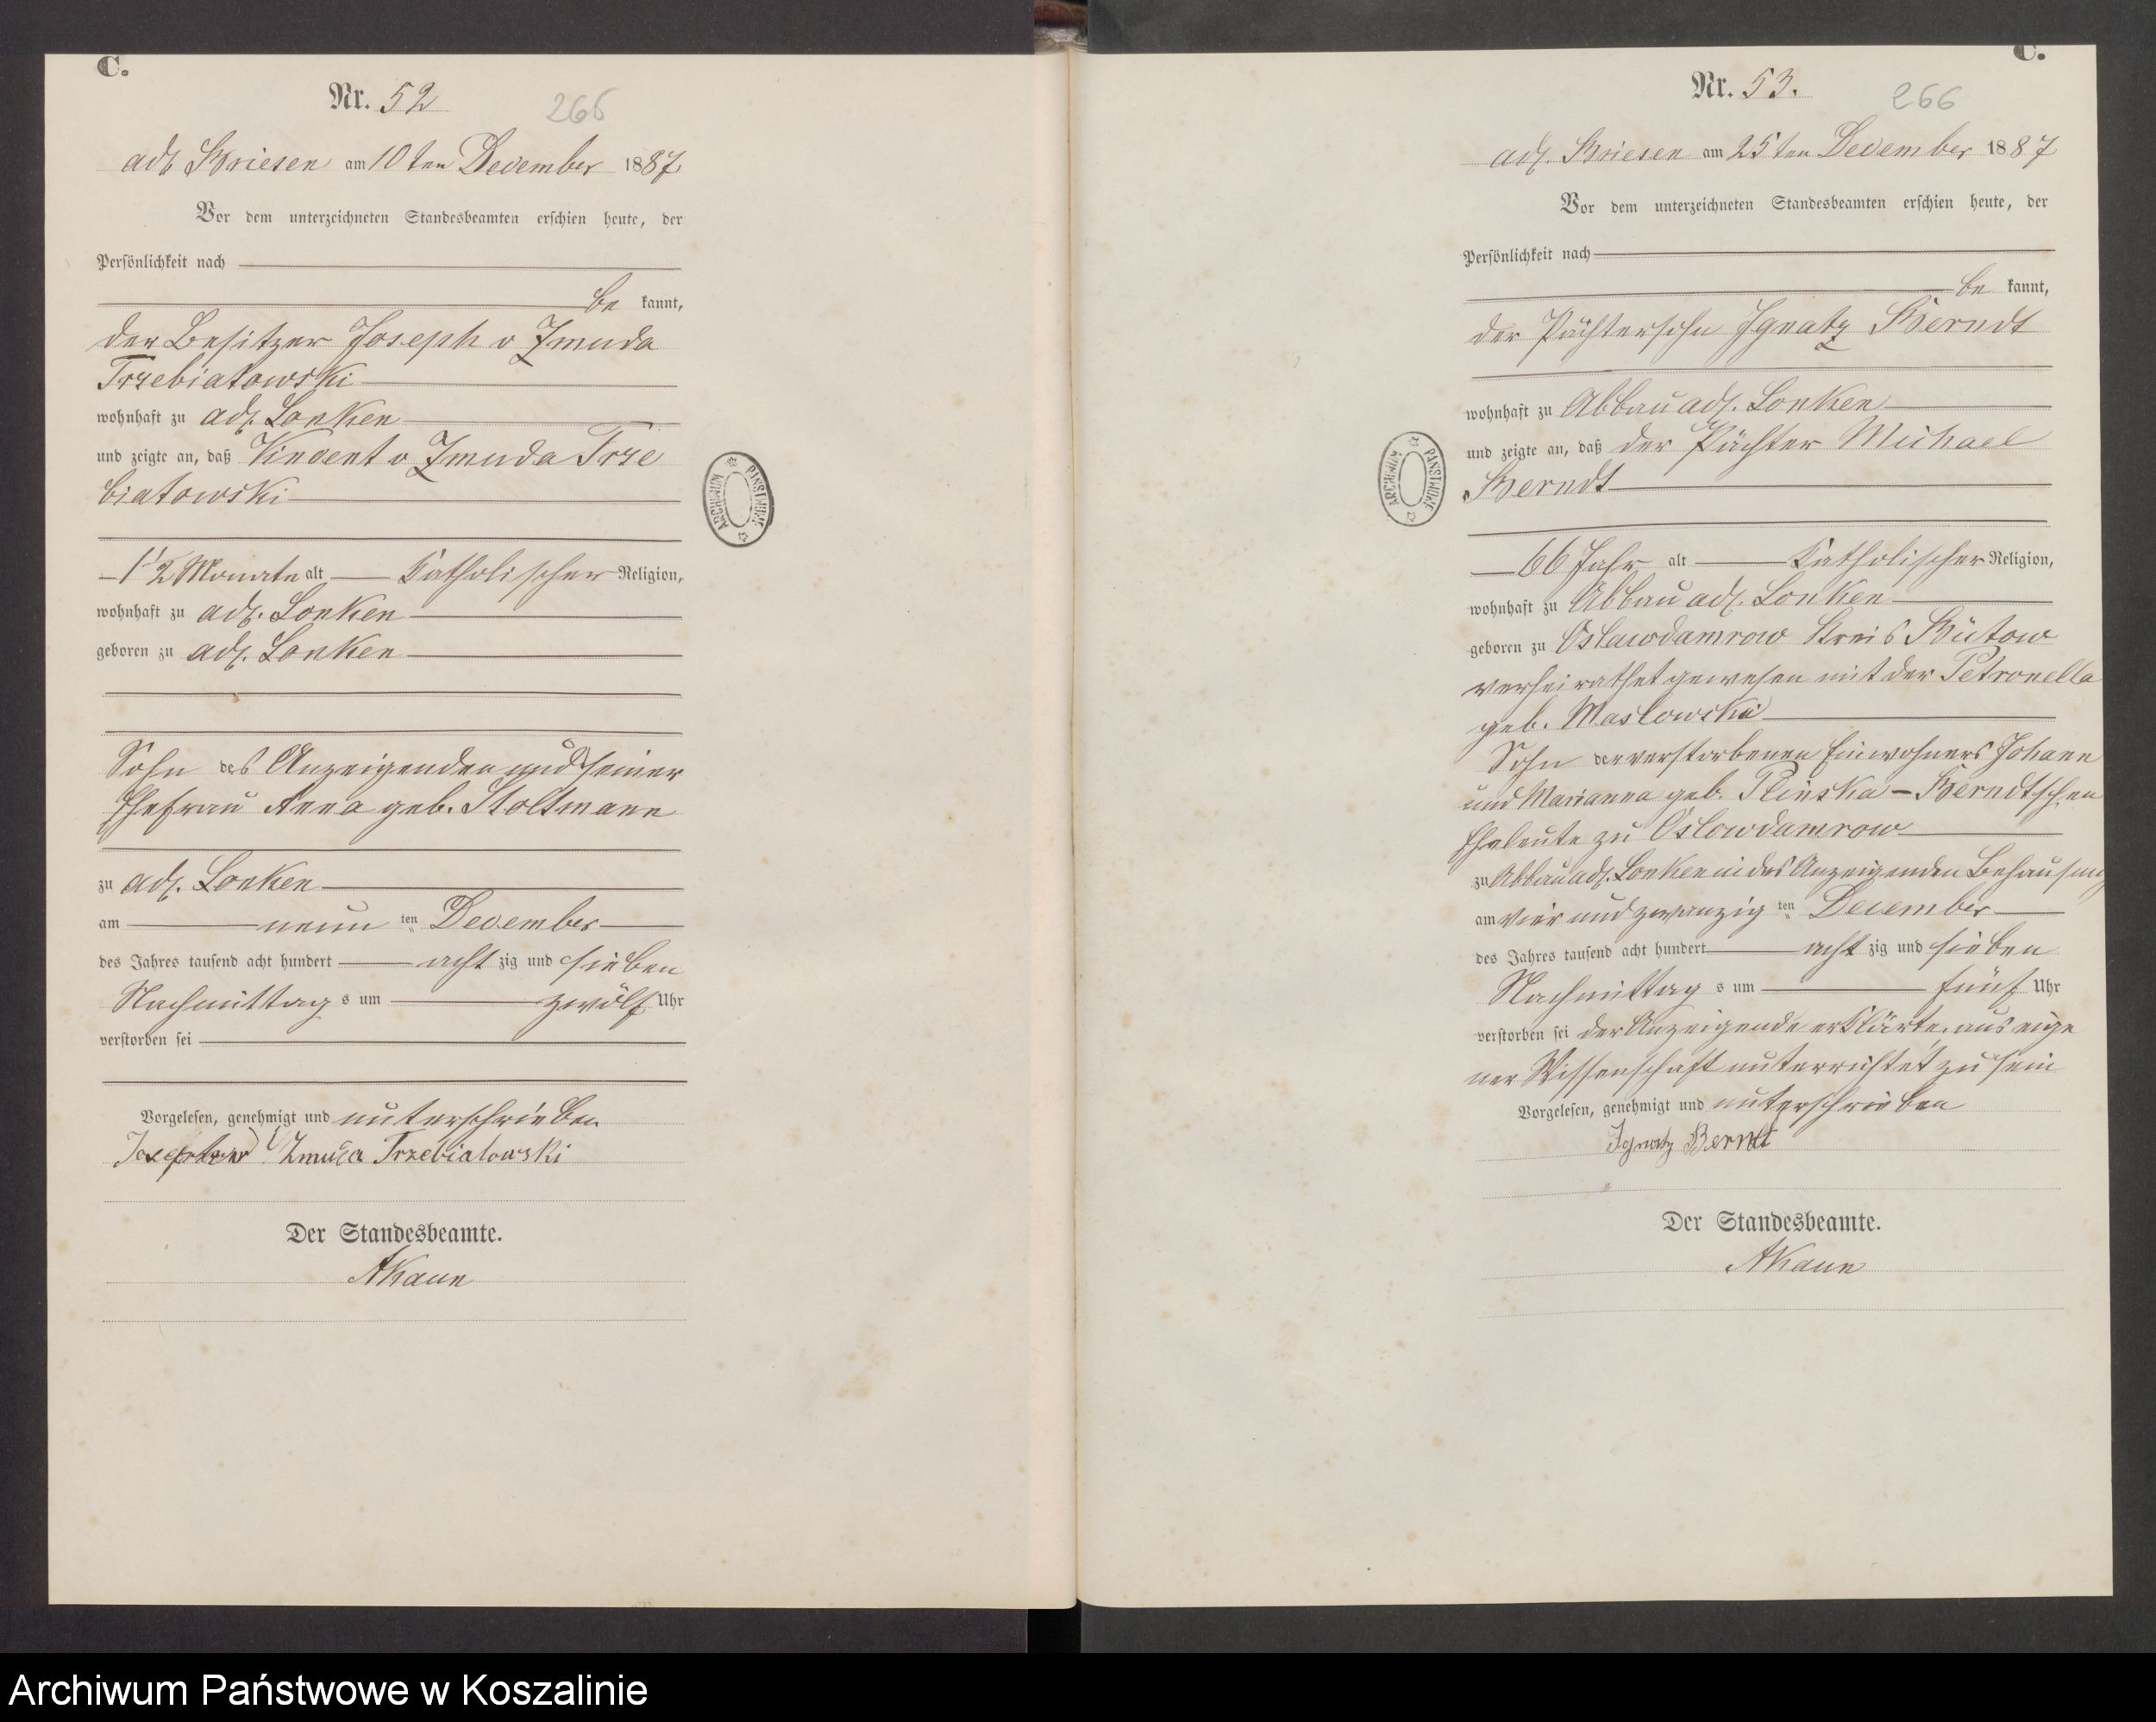 C.
Nr. 52
265
adl. Briesen am 10ten December 1887
Vor dem unterzeichneten Standesbeamten erschien heute, der
Persönlichkeit nach
be kannt,
der Besitzer Joseph v Zmuda
Trzebiatowski
wohnhaft zu adl. Lonken
und zeigte an, daß Vincent v Zmuda Trze
biatowski
1 1/2 Monate alt Katholischer Religion,
wohnhaft zu adl. Lonken
geboren zu adl. Lonken
Sohn des Anzeigenden und seiner
Ehefrau Anna geb. Stoltmann
zu adl. Lonken
am neun ten December
des Jahres tausend acht hundert acht zig und sieben
Nachmittag s um zwölf Uhr
verstorben sei
Vorgelesen, genehmigt und unterschrieben
Zmuda Trzebiatowski
Der Standesbeamte.
AKaun
ARCHIWUM PAŃSTWOWE
C.
Nr. 53.
266
adl. Briesen am 25ten December 1887
Vor dem unterzeichneten Standesbeamten erschien heute, der
Persönlichkeit nach
be kannt,
der Pächtersohn Ignatz Berndt
wohnhaft zu Abbau adl. Lonken
und zeigte an, daß der Pächter Michael
Berndt
66 Jahr alt Katholischer Religion,
wohnhaft zu Abbau adl. Lonken
geboren zu Oslawdamrow Kreis Bütow
verheirathet gewesen mit der Petronella
geb. Maslowski
Sohn der verstorbenen Einwohners Johann
und Marianna geb. Plinska - Berndtschen
Eheleute zu Oslowdamrow
zu Abbau adl. Lonken in des Anzeigenden Behausung
am vier und zwanzig ten December
des Jahres tausend acht hundert acht zig und sieben
Nachmittag s um fünf Uhr
verstorben sei der Anzeigende erklärte, aus eige
ner Wissenschaft unterrichtet zu sein
Vorgelesen, genehmigt und unterschrieben
Ignatz Berndt
Der Standesbeamte.
AKaun
ARCHIWUM PAŃSTWOWE
Archiwum Państwowe w Koszalinie